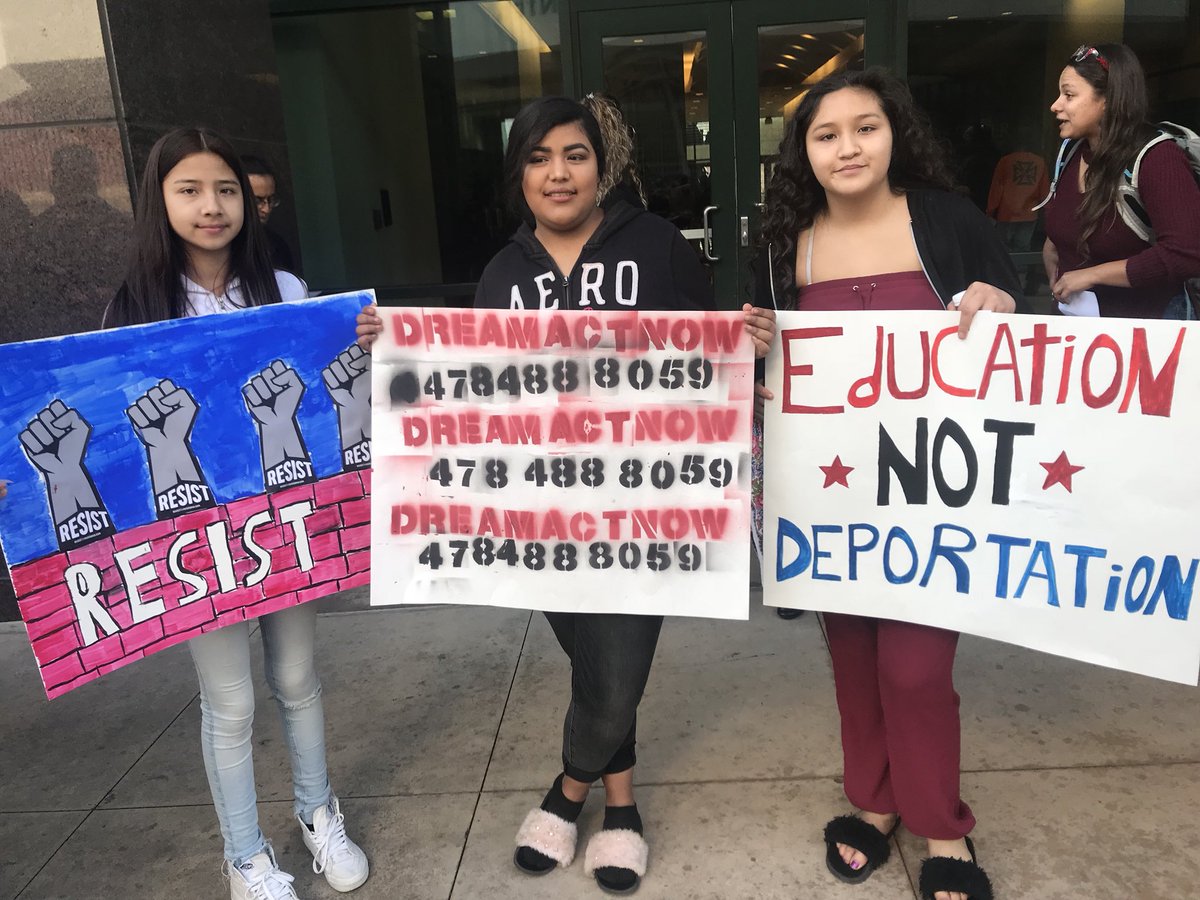 RESIST
RESIST
RESIST
RESIST
RESIST
AERO
DREAM ACT NOW
478488 8059
DREAM ACT NOW
478 488 8059
DREAM ACT NOW
4784888059
EdUCATiON
NOT
DEPORTATiON